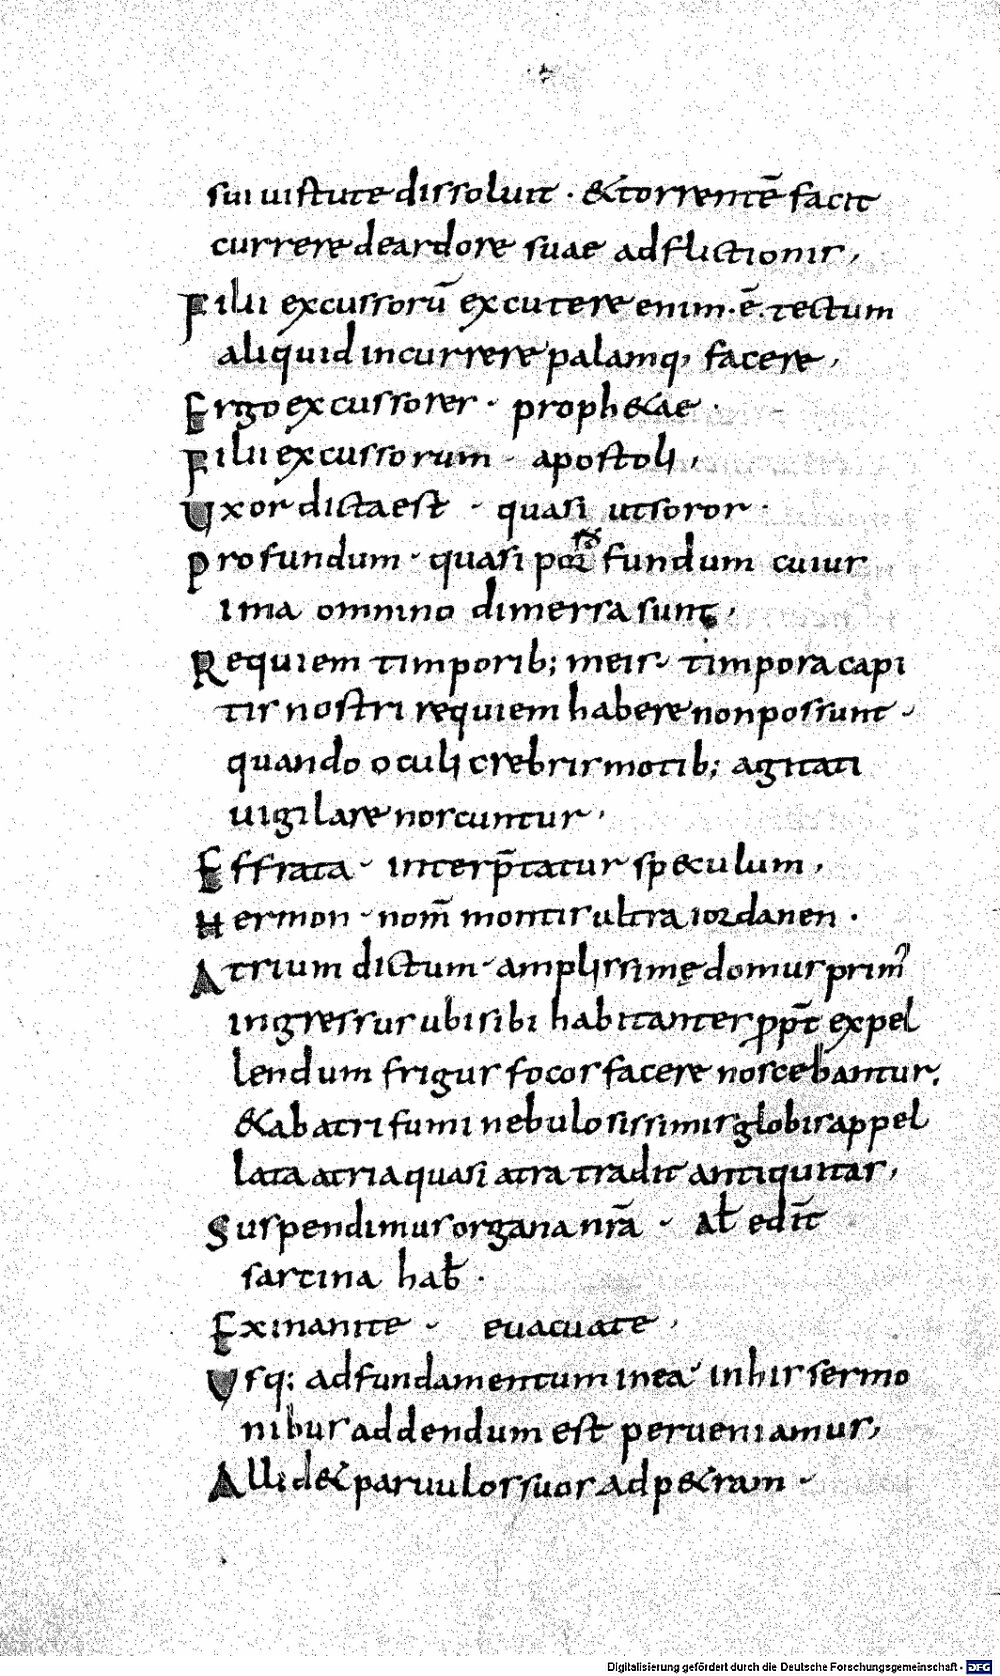 sui uirtute dissoluit · & torrentē facit
currere de ardore suae adflictionis,
Filii excussorū excutere enim · ē · tectum
aliquid incurrere palamq, facere,
Ergo excussores · proph&ae ·
Filii excussorum · apostoli,
Uxor dicta est · quasi ut soror ·
Profundum · quasi porro fundum cuius
ima omnino dimersa sunt,
Requiem timporib; meis · timpora capi
tis nostri requiem habere non possunt ·
quando oculi crebris motib; agitati
uigilare noscuntur,
Effrata · interp̄tatur sp&culum,
Hermon · nom̄ montis ultra iordanen ·
Atrium dictum · amplissimę domus prim'
ingressus ubi sibi habitantes ꝓpt̄ expel
lendum frigus focos facere noscebantur,
& ab atri fumi nebulosissimis globis appel
lata atria quasi atra tradit antiquitas,
Suspendimus organa nr̄a · Alt̄ edit̄
sartina hab̄ ·
Exinanite · euacuate,
Usq; ad fundamentum in ea · in his sermo
nibus addendum est perueniamus,
Allid& paruulos suos ad p&ram ·
Digitalisierung gefördert durch die Deutsche Forschungsgemeinschaft - DFG